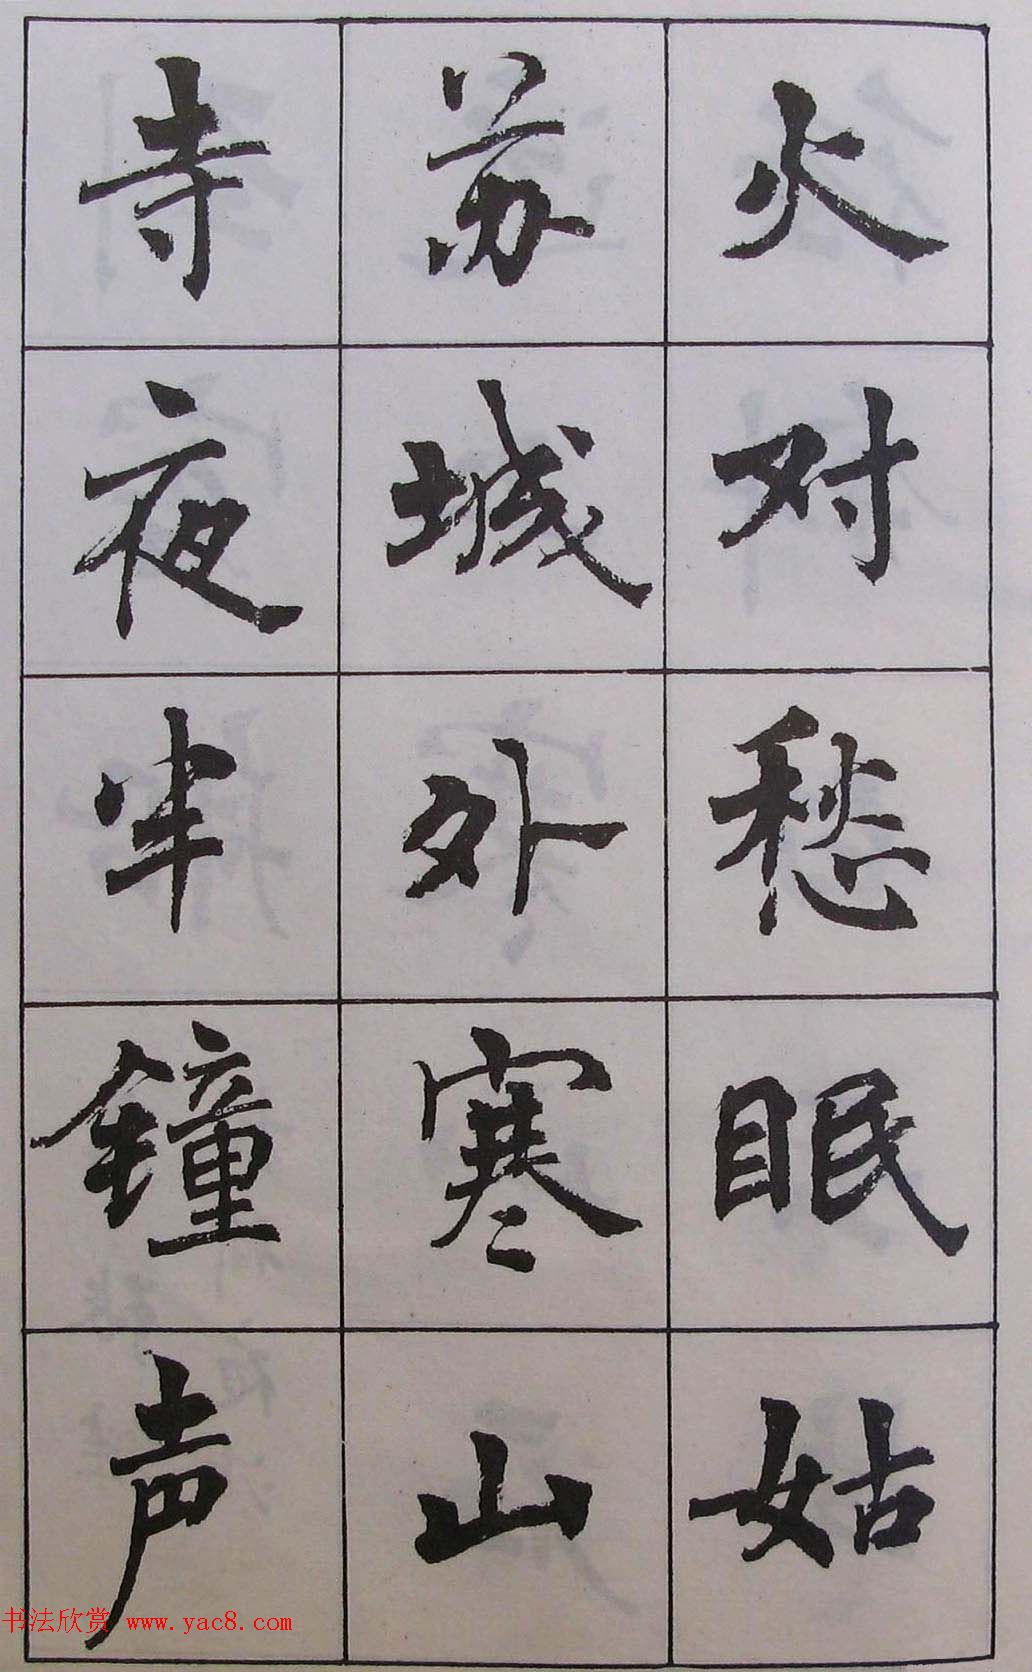 火对愁眠姑
苏城外寒山
寺夜半钟声
书法欣赏 www.yac8.com